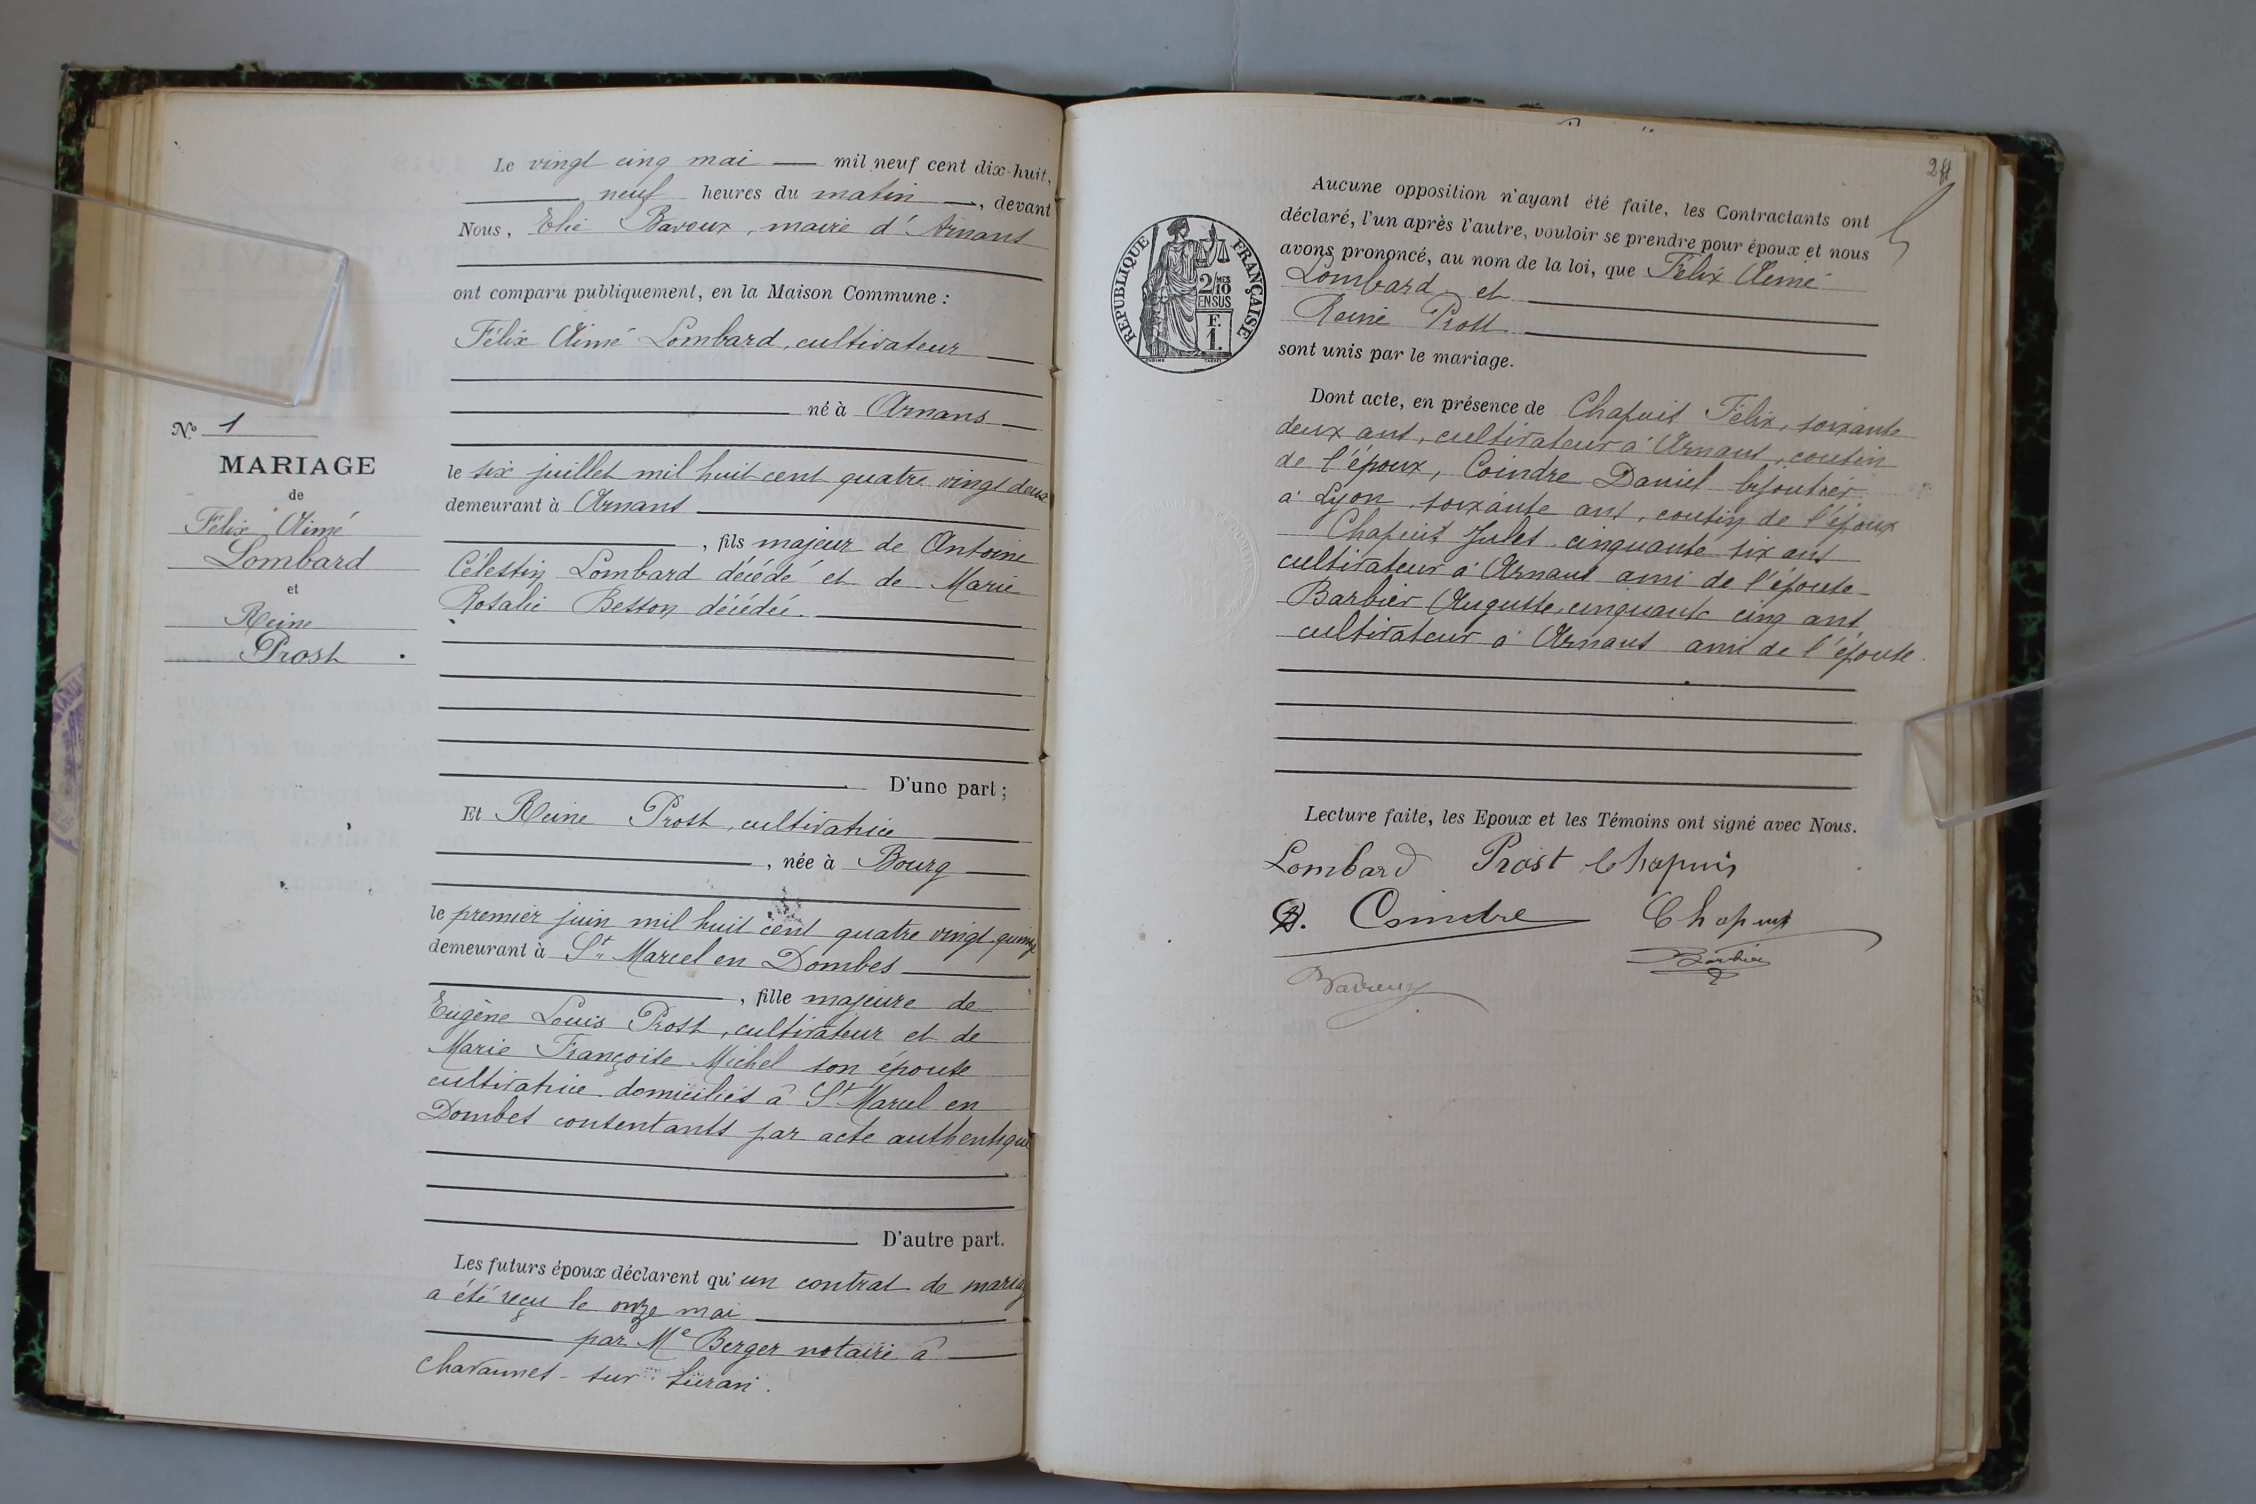 Le vingt cinq mai — mil neuf cent dix-huit,
neuf heures du matin —, devant
Nous, Elie Bavoux, maire d'Arnans
ont comparu publiquement, en la Maison Commune :
Félix Aimé Lombard, cultivateur
né à Arnans
N° 1
MARIAGE
de
Félix Aimé
Lombard
et
Reine
Prost
le six juillet mil huit cent quatre vingt deux
demeurant à Arnans
, fils majeur de Antoine
Célestin Lombard décédé et de Marie
Rosalie Besson décédée.
D'une part ;
Et Reine Prost, cultivatrice
, née à Bourg
le premier juin mil huit cent quatre vingt quinze
demeurant à St Marcel en Dombes
, fille majeure de
Eugène Louis Prost, cultivateur et de
Marie Françoise Michel son épouse
cultivatrice domiciliés à St Marcel en
Dombes consentants par acte authentique
D'autre part.
Les futurs époux déclarent qu'un contrat de mariage
a été reçu le onze mai
par Me Berger notaire à
Chavannes-sur-Suran.
2
Aucune opposition n'ayant été faite, les Contractants ont
déclaré, l'un après l'autre, vouloir se prendre pour époux et nous
avons prononcé, au nom de la loi, que Félix Aimé
Lombard et
Reine Prost
sont unis par le mariage.
RÉPUBLIQUE FRANÇAISE
2/10 MES
EN SUS
F.
1.
Dont acte, en présence de Chapuis Félix, soixante
deux ans, cultivateur à Arnans, cousin
de l'époux, Coindre Daniel bijoutier
à Lyon, soixante ans, cousin de l'époux
Chapuis Jules, cinquante six ans
cultivateur à Arnans ami de l'épouse
Barbier Auguste, cinquante cinq ans
cultivateur à Arnans ami de l'épouse.
Lecture faite, les Epoux et les Témoins ont signé avec Nous.
Lombard Prost Chapuis
D. Coindre Chapuis
Barbier
Bavoux